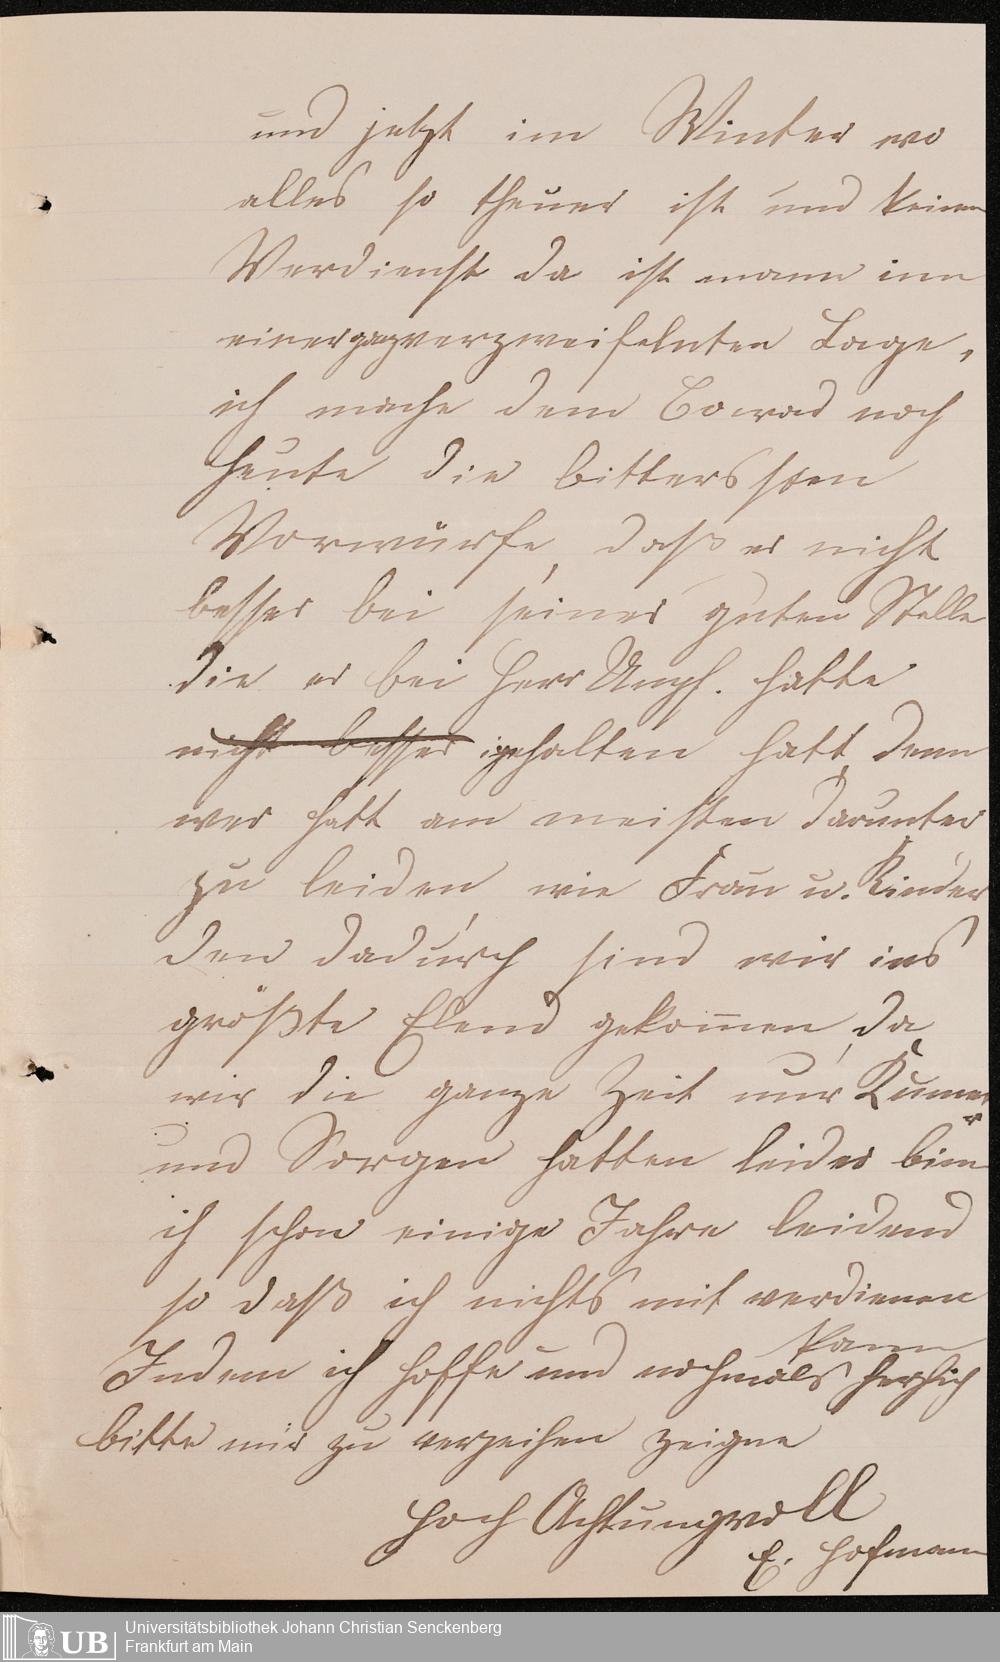 und jetzt im Winter wo
alles so theuer ist und keinen
Verdienst da ist mann inn
einer ganz verzweifelnten Lage,
ich mache dem Conrad noch
heute die bitterssten
Vorwürfe, daß er nicht
besser bei seiner guten Stelle
die er bei Herr Umpf. hatte
nicht besser gehalten hatt, denn
wer hatt am meisten darunter
zu leiden, wie Frau u. Kinder
den dadurch sind wir ins
größte Elend gekom̅en, da
wir die ganze Zeit nur Kumer
und Sorgen hatten leider bin
ich schon einige Jahre leidend
so daß ich nichts mit verdienen
kann
Indem ich hoffe und nochmals herzlich
bitte mir zu verzeihen zeigne
Hoch Achtungvoll
E. Hofmann
UB
Universitätsbibliothek Johann Christian Senckenberg
Frankfurt am Main